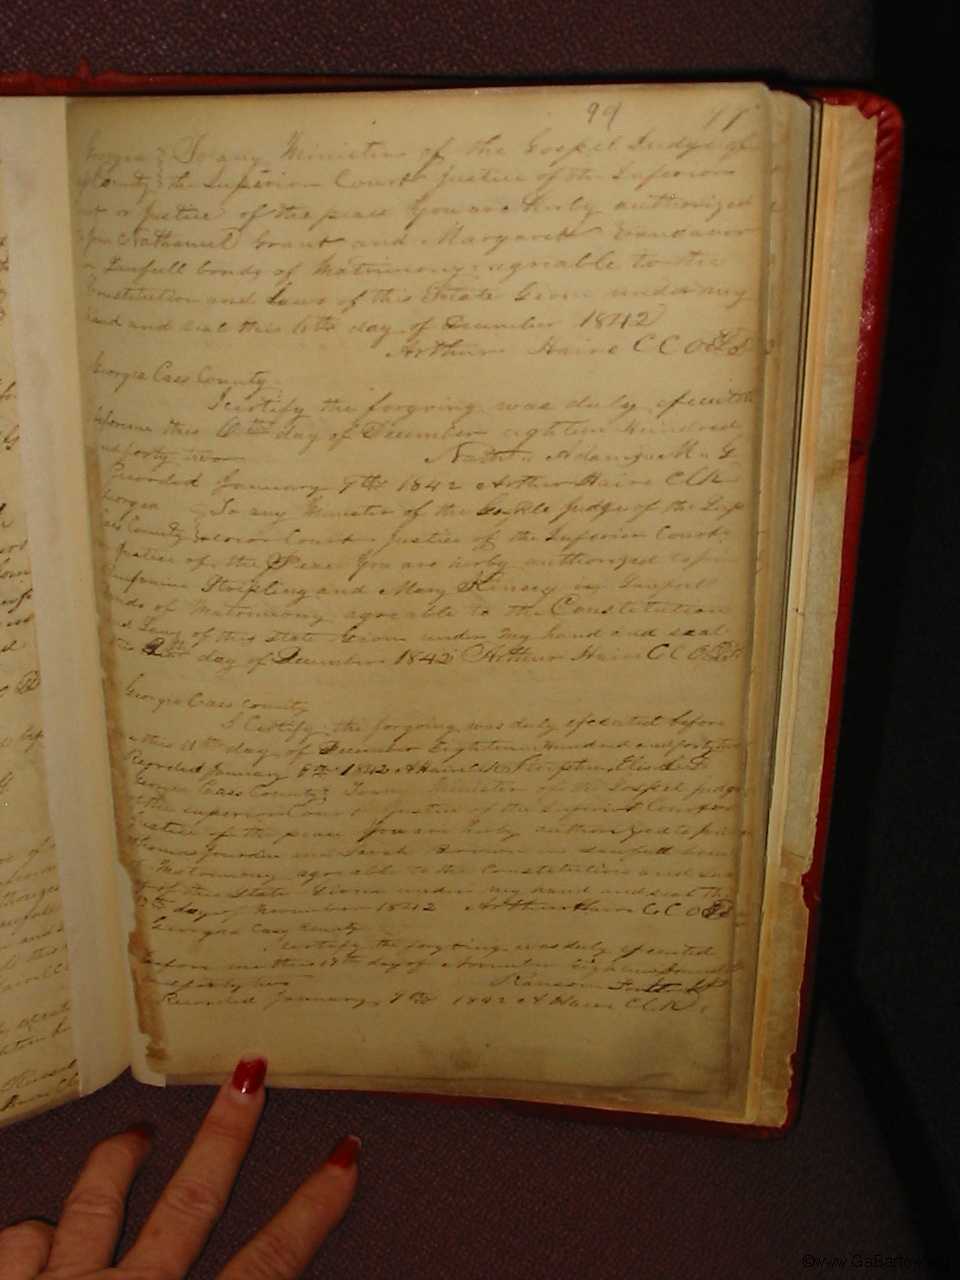 99 99
Georgia } To any Minister of the Gospel Judge of
County } the Superior Court Justice of the Inferior
or Justice of the peace You are herby authorized
to join Nathaniel Grant and Margarett Vandaver
Lawfull bonds of Matrimony agreable to the
Constitution and Laws of this State Given under my
hand and seal this 6th day of December 1842
Arthur Haire C C O
Georgia Cass County
I certify the forgoing was duly executed
before me this 6th day of December eighteen Hundred
and forty two Adams M. G
Recorded January 9th 1842 Arthur Haire Clk
Georgia To any Minister of the Gospele Judge of the Sup
Cass County } erior Court Justice of the Inferior Court
Justice of the Peace You are herby authorized to join
Benjamin Stripling and Mary Kinsey in Lawfull
bonds of Matrimony agreable to the Constitution
and Laws of this State Given under my hand and seal
this day of December 1842 Arthur Haire C C O
Georgia Cass County
I Certify the forgoing was duly executed before
me this 11th day of December Eighteen Hundred and forty two
Recorded January 9th 1842 A Haire Clk Stephen Ellis
Georgia Cass County } To any Minister of the Gospel Judge
of the superior Court Justice of the Inferior Court or
Justice of the peace You are herby authorized to join
Thomas Jourdin and Sarah Brown in lawfull bonds
of Matrimony agreable to the Constitution and Laws
of this State Given under my hand and seal this
17th day of November 1842 Arthur Haire C C O
Georgia Cass County
I certify the forgoing was duly executed
before me this 17th day of November Eighteen hundred
and forty two Ransom
Recorded January 9th 1842 A Haire Clk.
©www.GaBartow.org